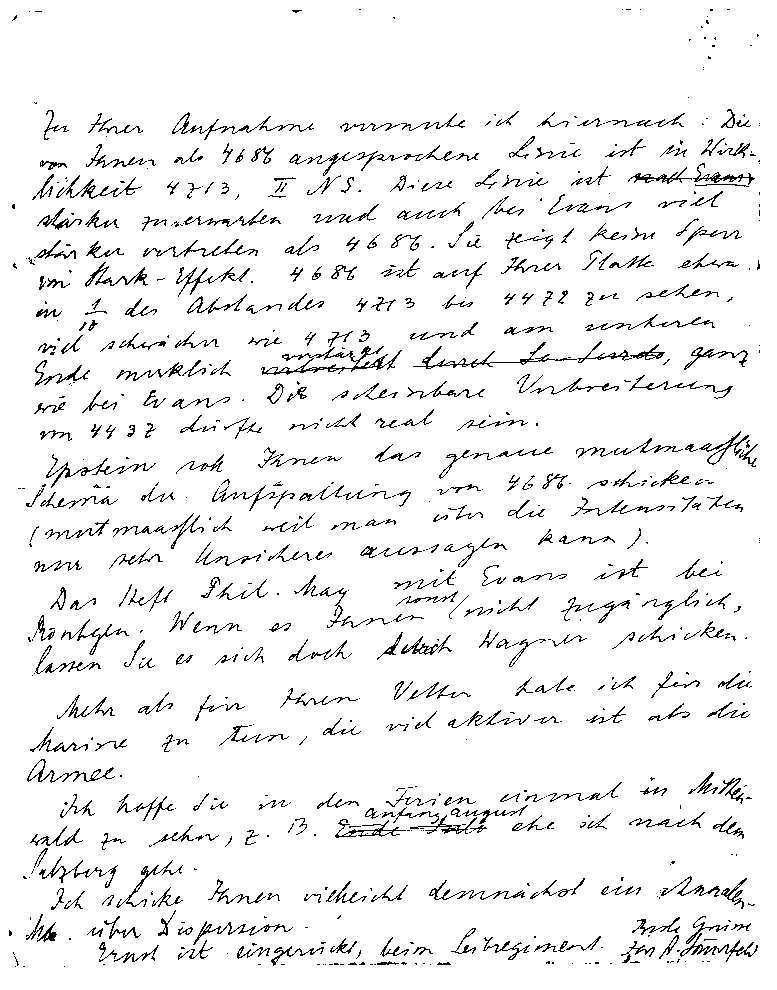 Zu Ihrer Aufnahme vermute ich hiernach: Die
von Ihnen als 4686 angesprochene Linie ist in Wirk-
lichkeit 4713, II NS. Diese Linie ist nach Evans
stärker zu erwarten und auch bei Evans viel
stärker vertreten als 4686. Sie zeigt keine Spur
von Stark-Effekt. 4686 ist auf Ihrer Platte etwa
in 1/10 des Abstandes 4713 bis 4472 zu sehen,
viel schwächer wie 4713 und am unteren
Ende merklich verbreitert verstärkt durch Lo Surdo, ganz
wie bei Evans. Die scheinbare Verbreiterung
von 4437 dürfte nicht real sein.
Epstein soll Ihnen das genaue mutmaassliche
Schema der Aufspaltung von 4686 schicken
(mutmaasslich weil man über die Intensitäten
nur sehr Unsicheres aussagen kann).
Das Heft Phil. Mag mit Evans ist bei
Röntgen. Wenn es Ihnen sonst nicht zugänglich,
lassen Sie es sich doch durch Wagner schicken.
Mehr als für Ihren Vetter habe ich für die
Marine zu tun, die viel aktiver ist als die
Armee.
Ich hoffe Sie in den Ferien einmal in Mitten-
wald zu sehn, z. B. Ende Juli anfang august ehe ich nach dem
Salzberg gehe.
Ich schicke Ihnen vielleicht demnächst ein Annalen-
Mk. über Dispersion.
Ernst ist eingerückt, beim Leibregiment. Beste Grüsse
Ihr A. Sommerfeld